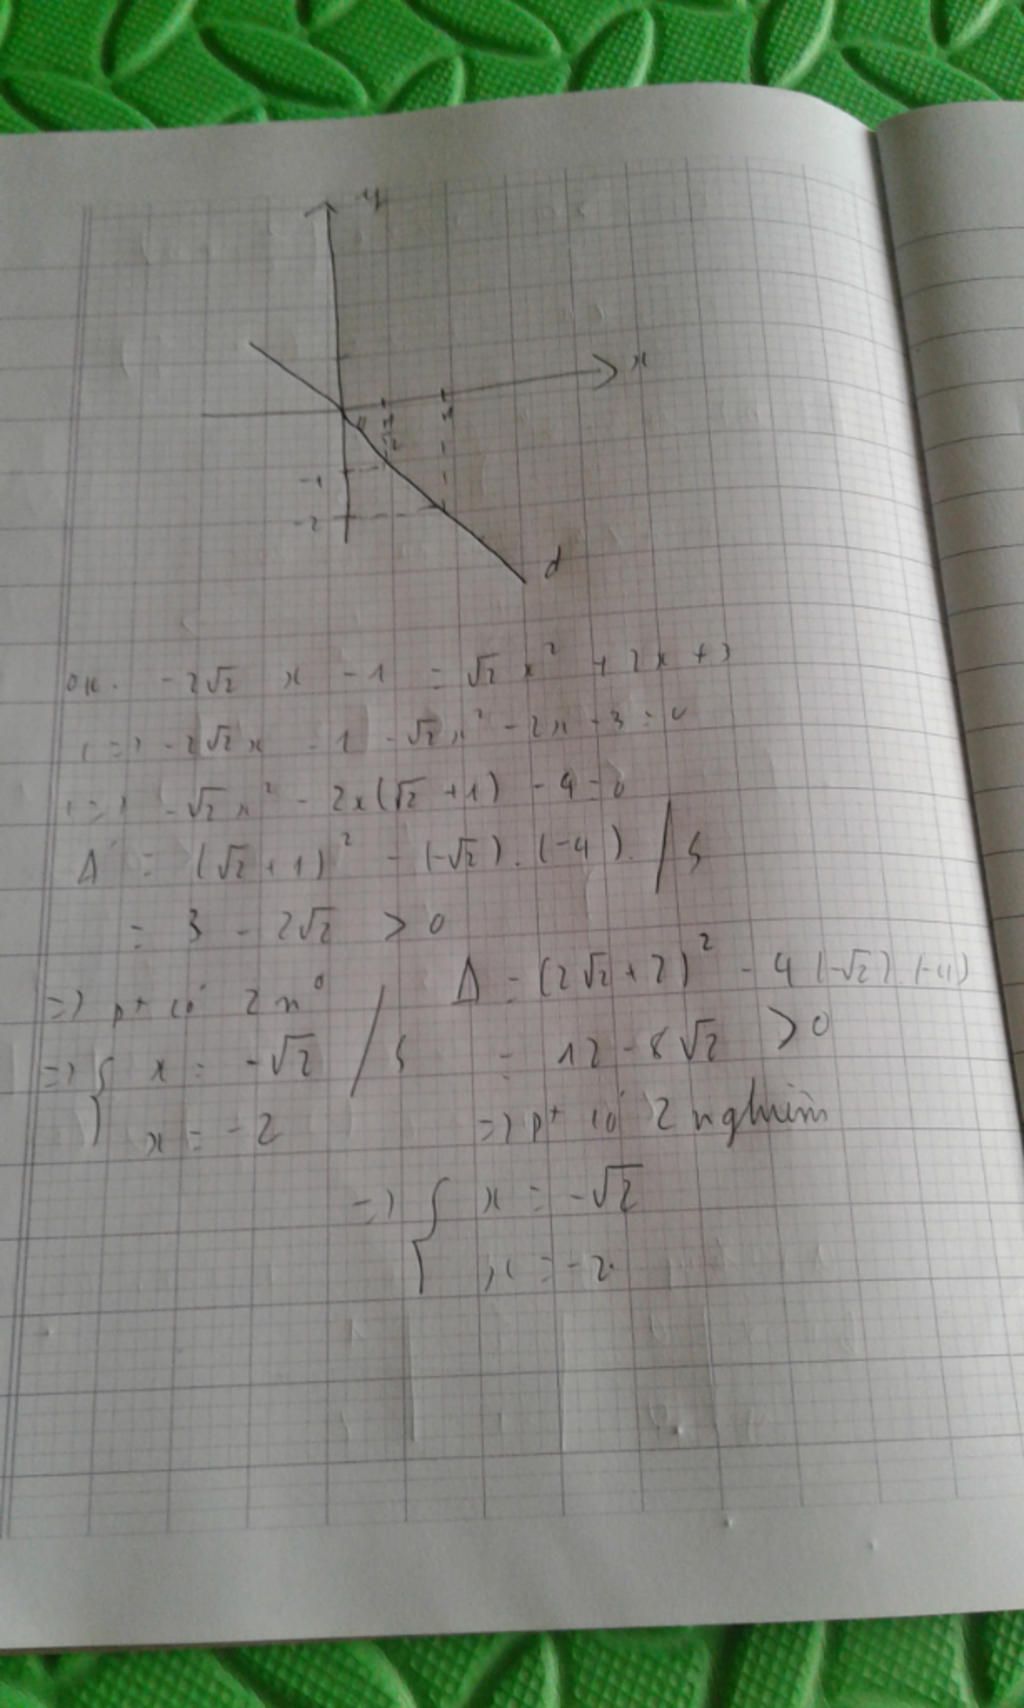 y
x
-1
-2
d
-2√2 x - 1 = √2 x² + 2x + 3
<=> -2√2 x - 1 - √2 x² - 2x - 3 = 0
<=> -√2 x² - 2x(√2 + 1) - 4 = 0
Δ' = (√2 + 1)² - (-√2).(-4). / S
= 3 - 2√2 > 0
=> pt có 2 n⁰
=> { x = -√2 / S
x = -2
Δ = (2√2 + 2)² - 4(-√2).(-4)
= 12 - 8√2 > 0
=> pt có 2 nghiệm
=> { x = -√2
x = -2